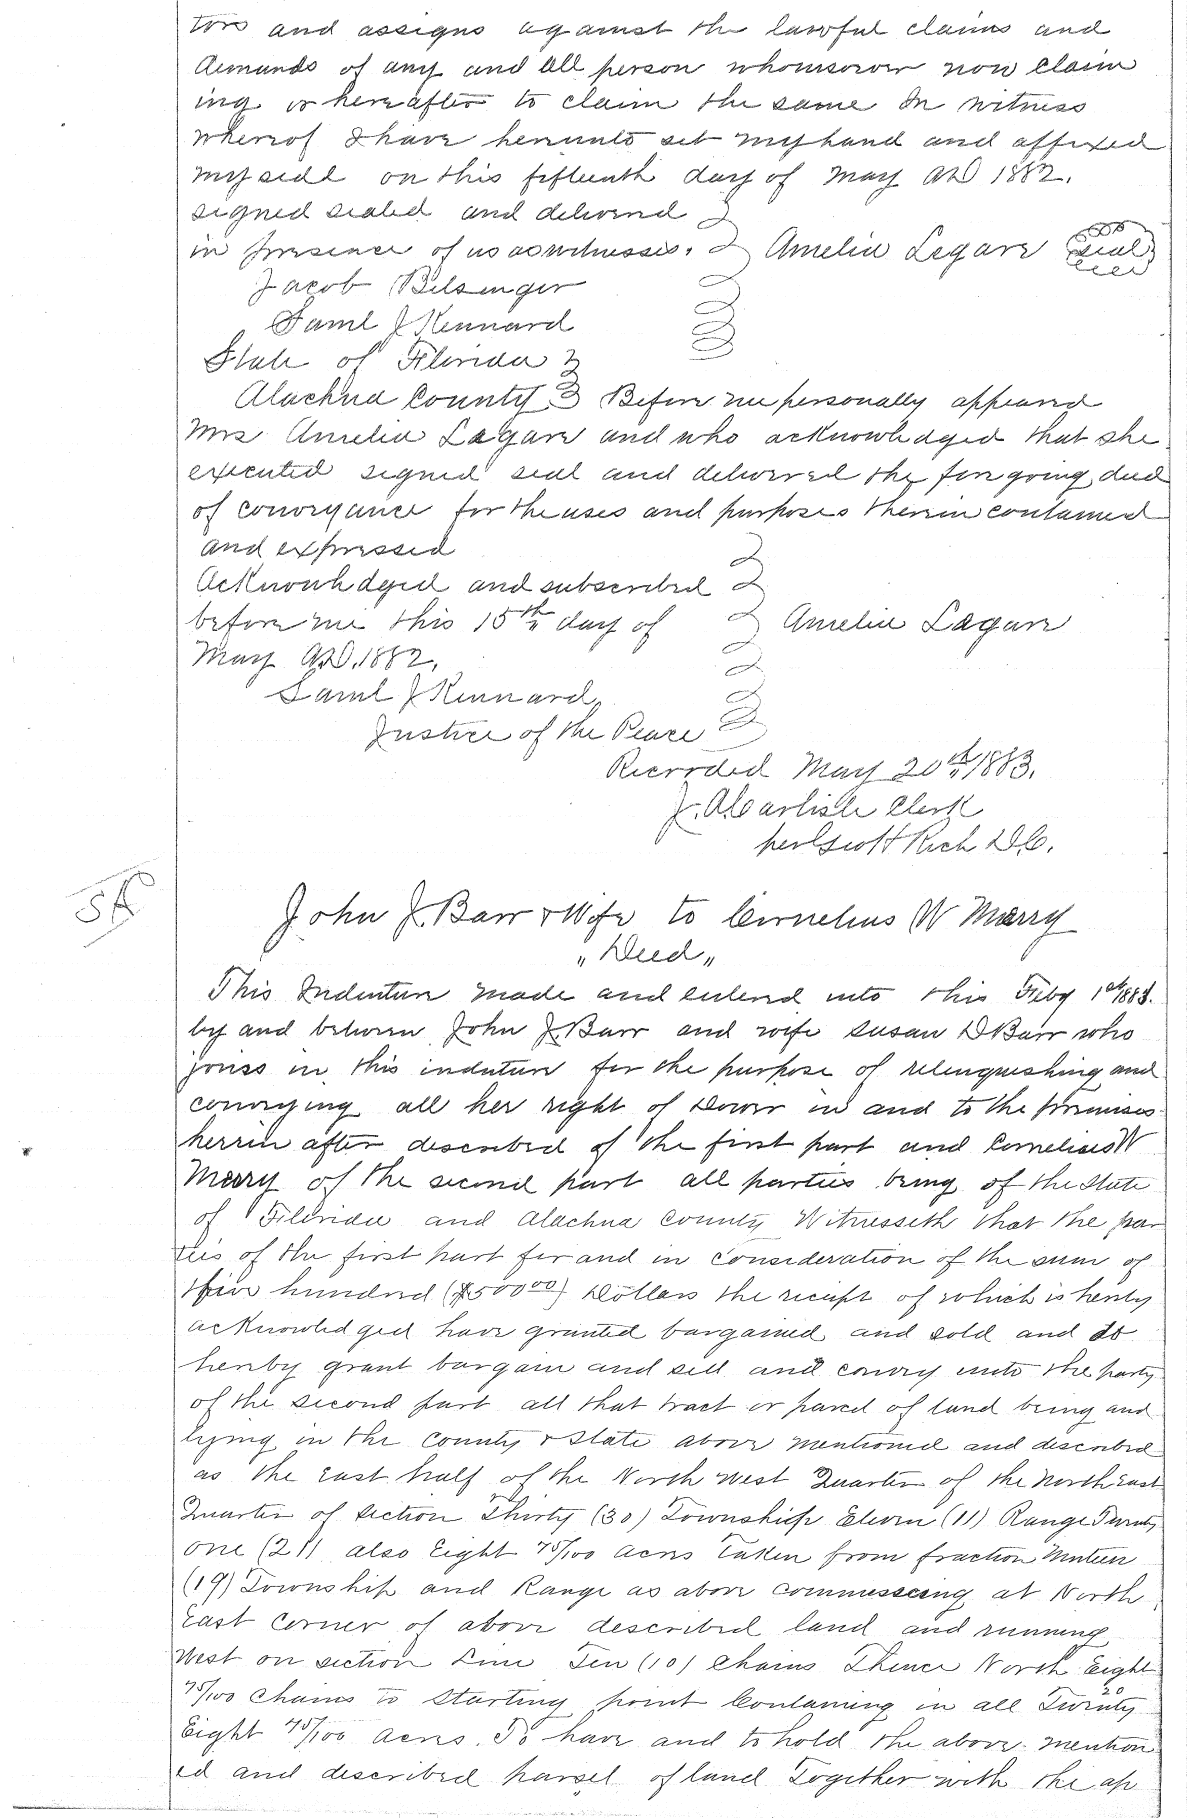 tors and assigns against the lawful claims and
demands of any and all person whomsoever now claim
ing or hereafter to claim the same In witness
whereof I have hereunto set my hand and affixed
my seal on this fifteenth day of May AD 1882.
signed sealed and delivered
in presence of us as witnesses. Amelia Legare seal
Jacob Belsinger
Saml J Kennard
State of Florida
Alachua County Before me personally appeared
Mrs Amelia Lagare and who acknowledged that she
executed signed seal and delivered the foregoing deed
of conveyance for the uses and purposes therein contained
and expressed
Acknowledged and subscribed
before me this 15th day of Amelia Lagare
May AD. 1882.
Saml J Kennard,
Justice of the Peace
Recorded May 20th 1883.
J. A Carlisle Clerk
per Scott Rich D.C.
John J. Barr & Wife to Cornelius W Marry
"Deed"
This Indenture made and entered into this Feby 1st 1883.
by and between John J. Barr and wife Susan D Barr who
joins in this indenture for the purpose of relinquishing and
conveying all her right of Dower in and to the premises
herein after described of the first part and Cornelius W
Marry of the second part all parties being of the State
of Florida and Alachua County Witnesseth that the par
ties of the first part for and in consideration of the sum of
five hundred ($500 00) Dollars the receipt of which is hereby
acknowledged have granted bargained and sold and do
hereby grant bargain and sell and convey unto the party
of the second part all that tract or parcel of land being and
lying in the County & State above mentioned and described
as the East half of the North West Quarter of the North East
Quarter of Section Thirty (30) Township Eleven (11) Range Twenty
one (21) also Eight 75/100 acres taken from fraction
(19) Township and Range as above commesseing at North
East corner of above described land and running
West on section Line Ten (10) Chains Thence North Eight
75/100 Chains to Starting point Containing in all Twenty
Eight 75/100 acres. To have and to hold the above mention
ed and described parsel of land Together with the ap